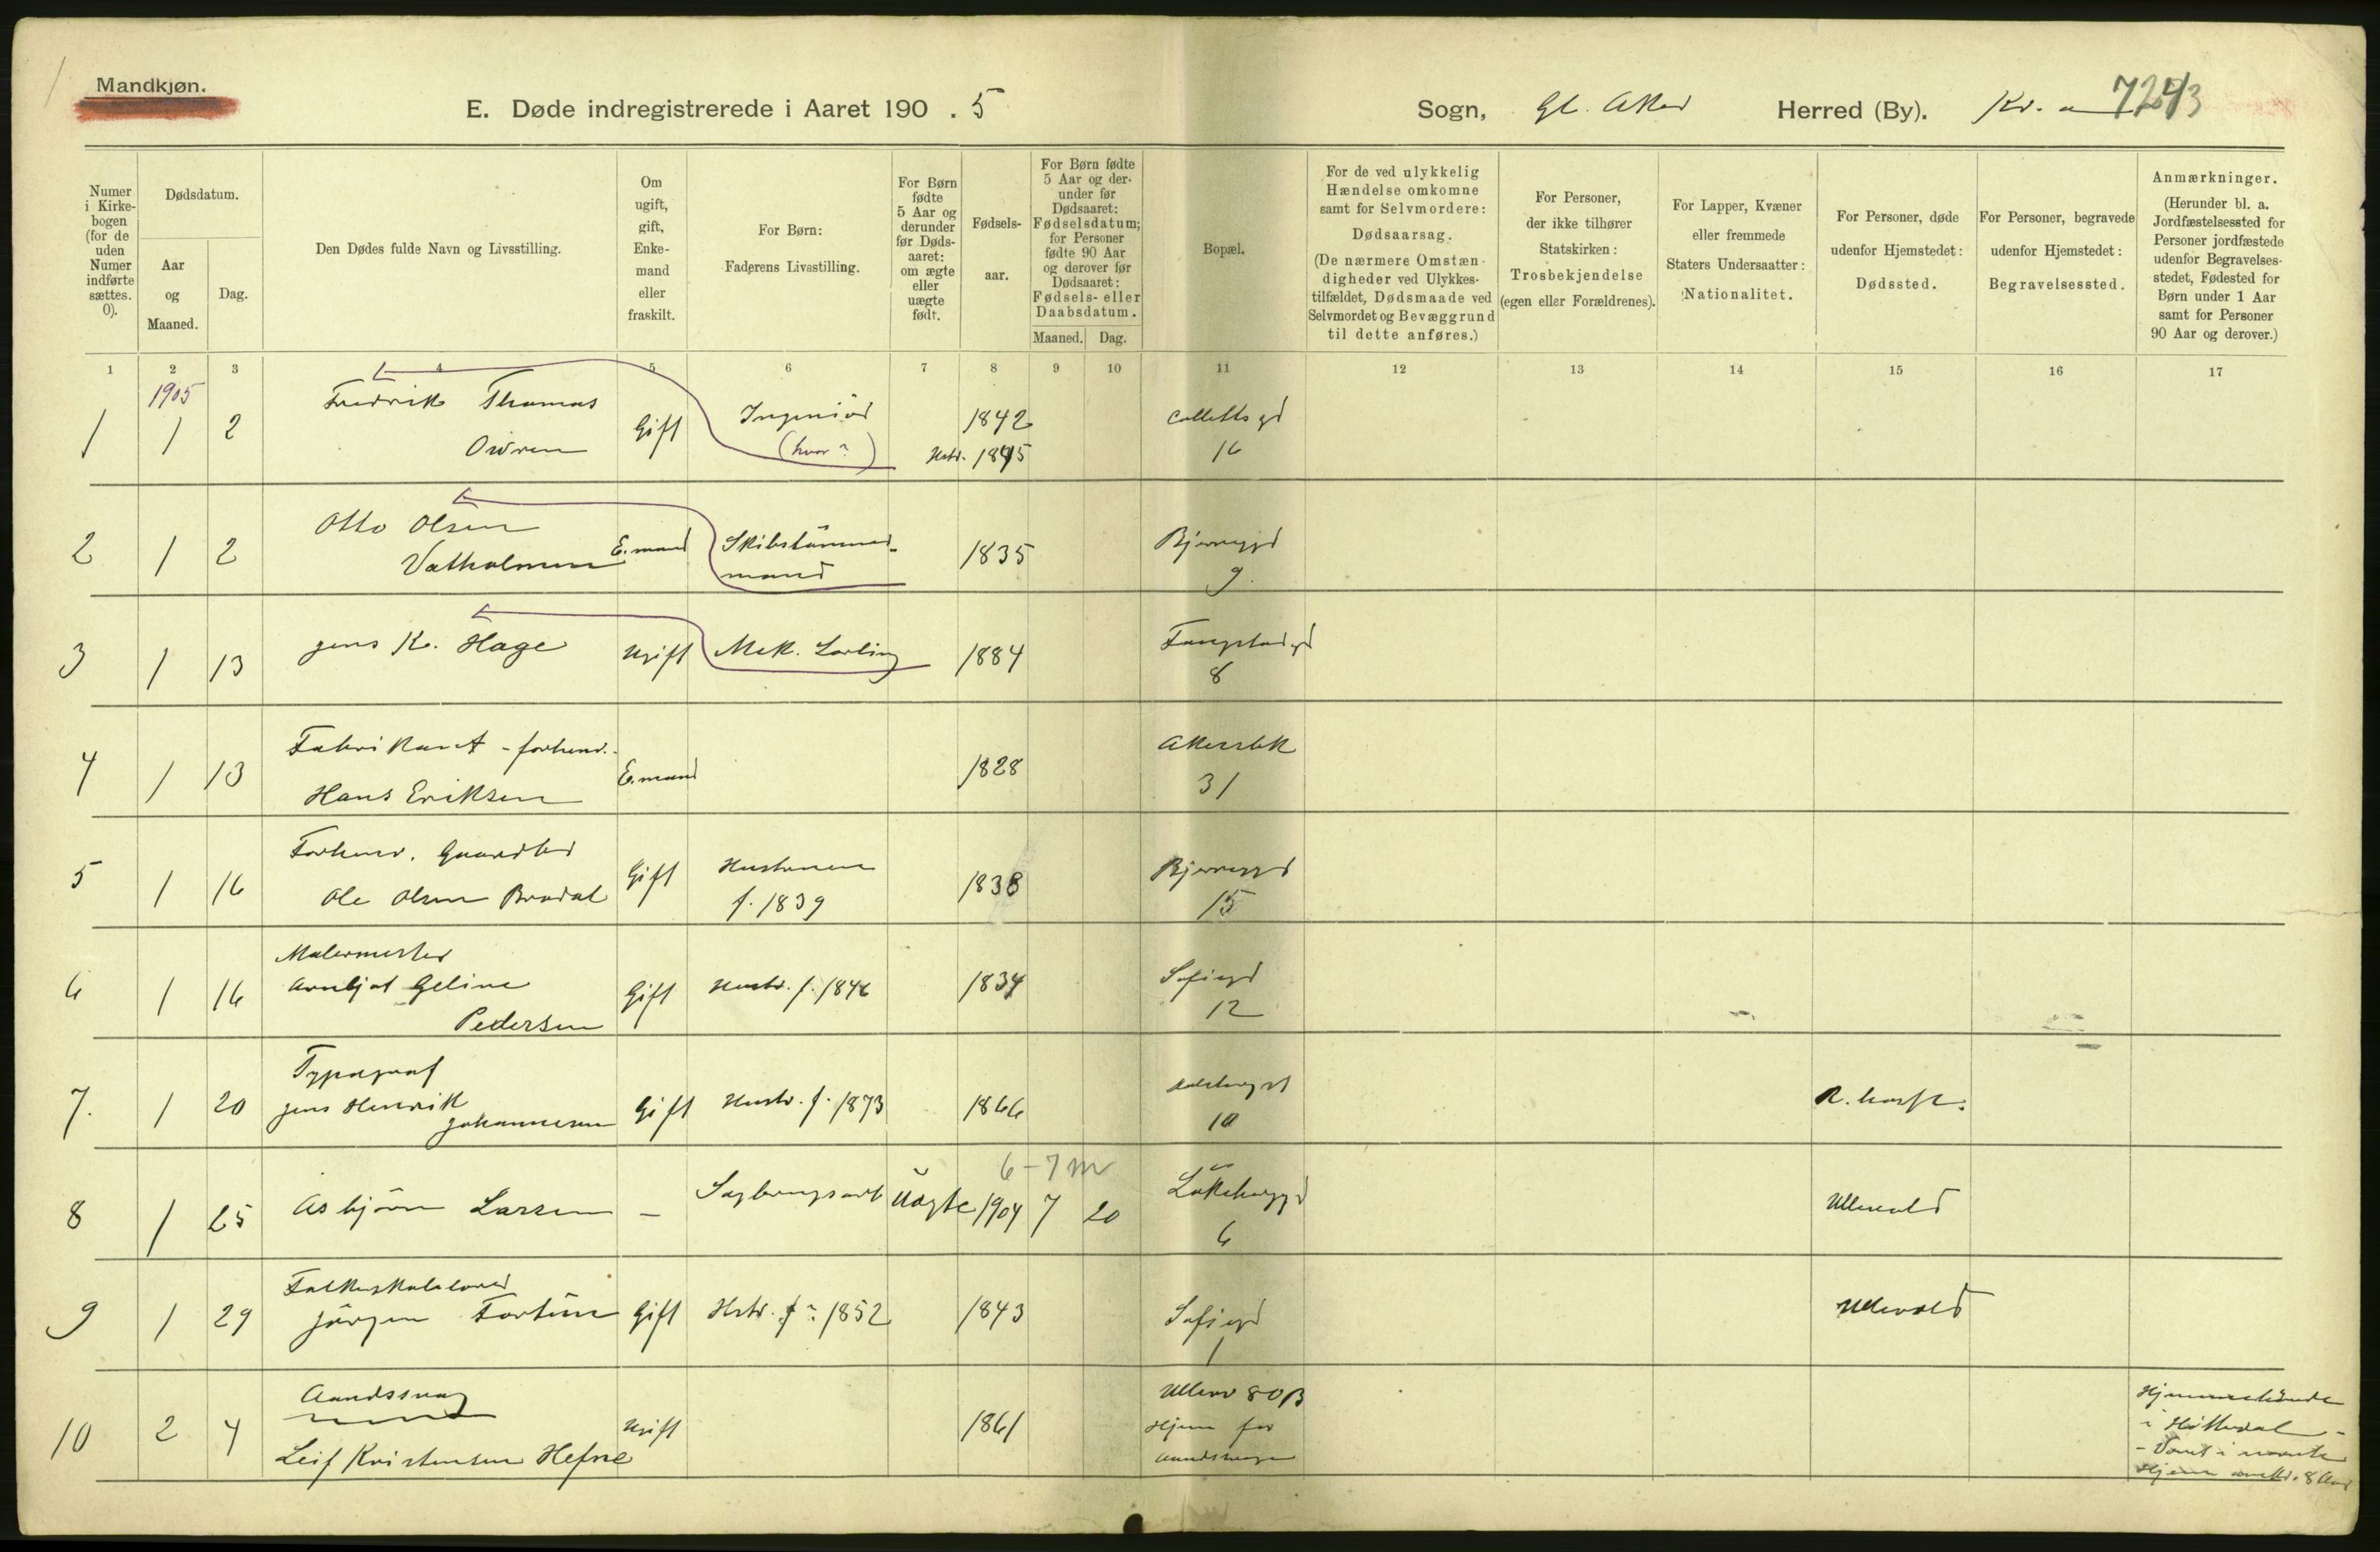 Mandkjøn.
E. Døde indregistrerede i Aaret 190 . 5
Sogn, Gl. Aker Herred (By). Kr. a 7243
Numer
i Kirke-
bogen
(for de
uden
Numer
indførte
sættes.
0).
Dødsdatum.
Aar
og
Maaned.
Dag.
Den Dødes fulde Navn og Livsstilling.
Om
ugift,
gift,
Enke-
mand
eller
fraskilt.
For Børn:
Faderens Livsstilling.
For Børn
fødte
5 Aar og
derunder
før Døds-
aaret:
om ægte
eller
uægte
født.
Fødsels-
aar.
For Børn fødte
5 Aar og der-
under før
Dødsaaret:
Fødselsdatum;
for Personer
fødte 90 Aar
og derover før
Dødsaaret:
Fødsels- eller
Daabsdatum.
Maaned. Dag.
Bopæl.
For de ved ulykkelig
Hændelse omkomne
samt for Selvmordere:
Dødsaarsag.
(De nærmere Omstæn-
digheder ved Ulykkes-
tilfældet, Dødsmaade ved
Selvmordet og Bevæggrund
til dette anføres.)
For Personer,
der ikke tilhører
Statskirken:
Trosbekjendelse
(egen eller Forældrenes).
For Lapper, Kvæner
eller fremmede
Staters Undersaatter:
Nationalitet.
For Personer, døde
udenfor Hjemstedet:
Dødssted.
For Personer, begravede
udenfor Hjemstedet:
Begravelsessted.
Anmærkninger.
(Herunder bl. a.
Jordfæstelsessted for
Personer jordfæstede
udenfor Begravelses-
stedet, Fødested for
Børn under 1 Aar
samt for Personer
90 Aar og derover.)
1 2 3 4 5 6 7 8 9 10 11 12 13 14 15 16 17
1905
Fredrik Thomas Ingeniør 1842 Collettsgd
1 1 2 Gift
Owren (hvor?) Hstr. 1845 16
Otto Olsen Bjerregd
2 1 2 E.mand Skibstømmer- 1835
Vatholmen mand 9.
3 1 13 Jens K. Hage Ugift Mek. Lærling 1884
8
Fabrikant - forhenv. Akersbk
4 1 13 E.mand 1828
Hans Eriksen 31
Forhenv. Gaardbr Hustruen Bjerregd
5 1 16 Gift 1838
Ole Olsen Bradal f. 1839 15
Malermester
6 1 16 Arnljot Geline Gift Hustr. f. 1846 1834 Sofiegd
Pedersen 12
Typograf
7. 1 20 Jens Henrik Gift Hustr. f. 1873 1866 R. hosp.
Johannesen 10
6-7 m
8 1 25 Asbjørn Larsen - Uægte 1904 7 20 Løkkebergd Ullevold
6
Folkeskolelærer
9 1 29 Jörgen Gift Hstr. f? 1852 1843 Sofiegd Ullevold
1
Aandssvag Ullevv 80 B Hjemmehørende
10 2 4 Ugift 1861 Hjem for i Hitterdal -
Leif Kristensen Hefne aandssvage - Været i nævnte
Hjem omkr. 8 Aar